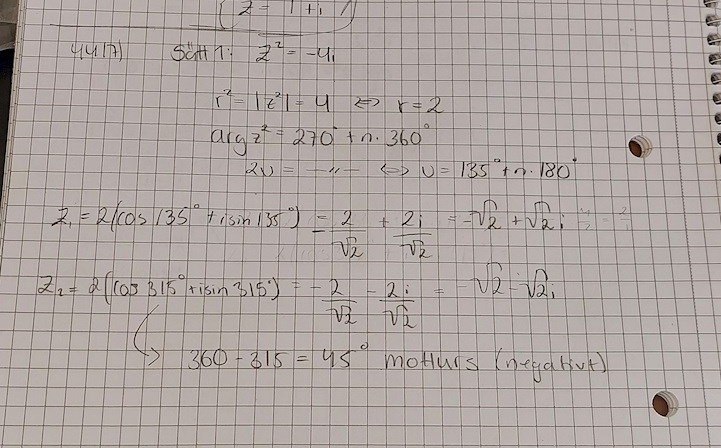 z = 1 + i
4417) Sätt 1: z² = -4i
r² = |z²| = 4 ⇔ r = 2
arg z² = 270° + n · 360°
2v = —"— ⇔ v = 135° + n · 180°
z₁ = 2(cos 135° + i sin 135°) = 2/√2 + 2i/√2 = -√2 + √2 i
z₂ = 2(cos 315° + i sin 315°) = -2/√2 - 2i/√2 = -√2 - √2 i
360 - 315 = 45° motturs (negativt)